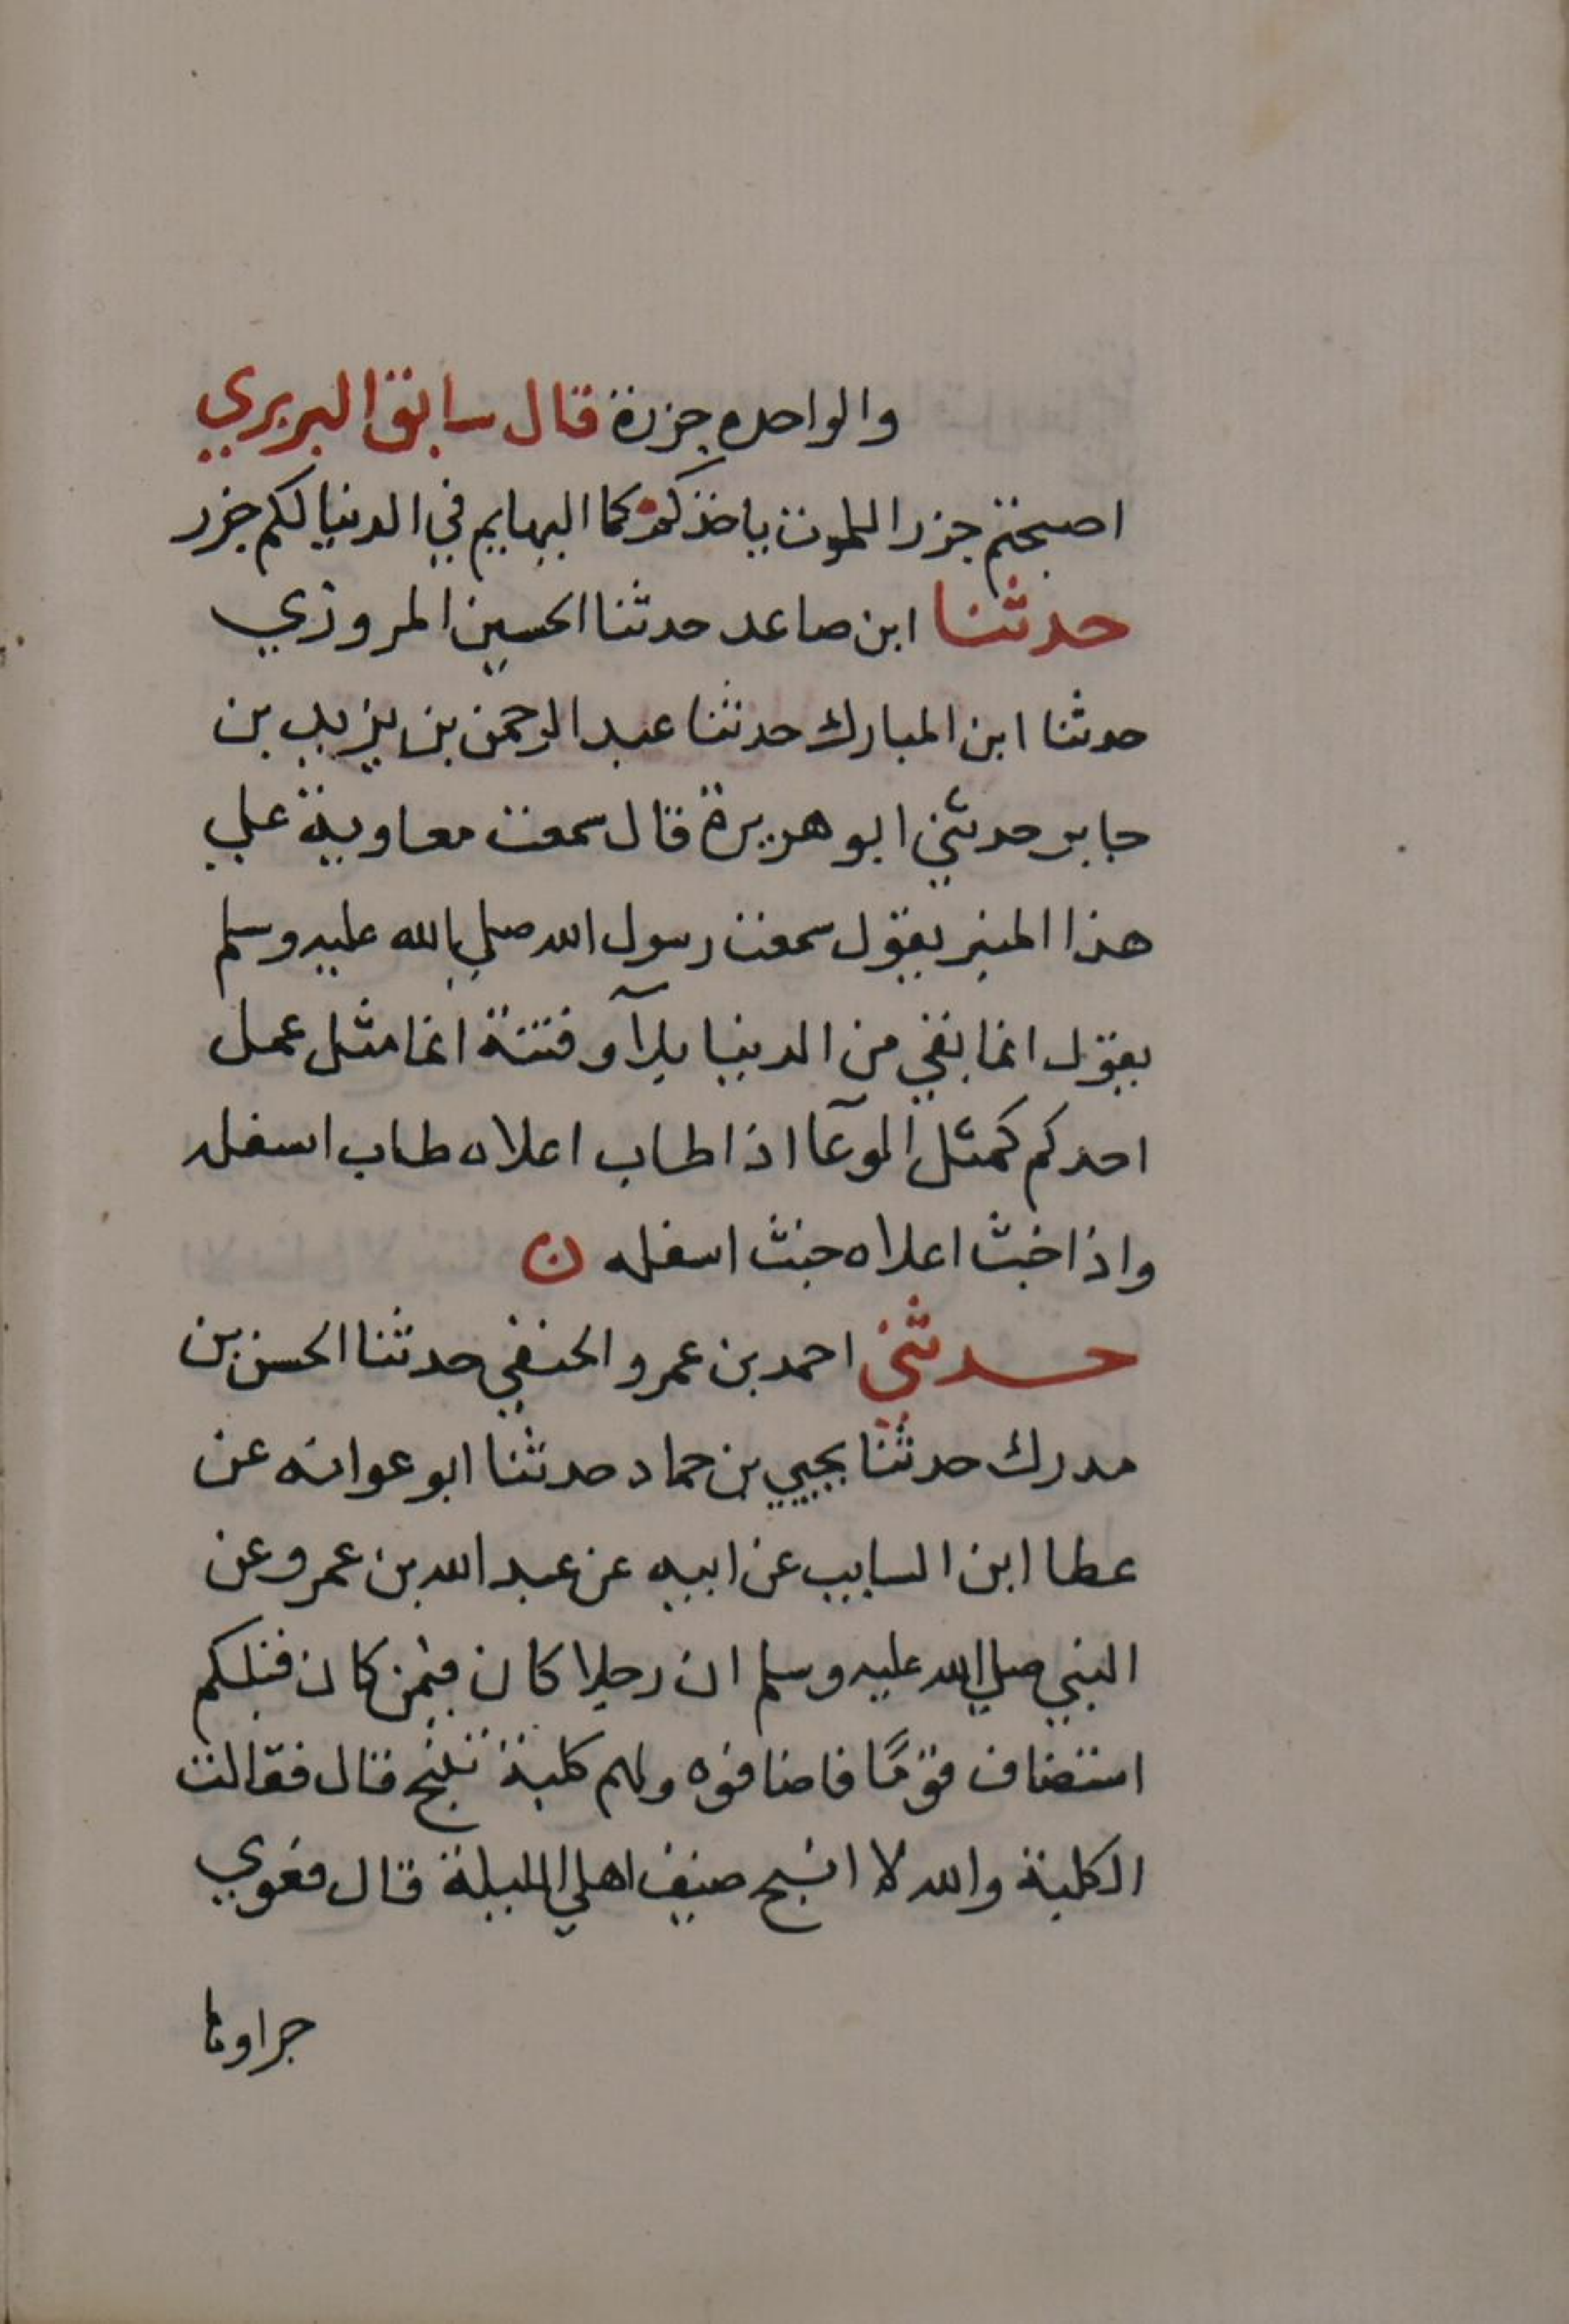 والواحده جزرة قال سابق البربري
اصبحتم جزرا للموت ياخذكم كما البهايم في الدنيا لكم جزر
حدثنا ابن صاعد حدثنا الحسين المروزي
حدثنا ابن المبارك حدثنا عبد الرحمن بن يزيد بن
جابر حدثني ابو هريرة قال سمعت معاوية علي
هذا المنبر يقول سمعت رسول الله صلي الله عليه وسلم
يقول انما بقي من الدنيا بلآ و فتنة انما مثل عمل
احدكم كمثل الوعآ اذا طاب اعلاه طاب اسفله
واذا خبث اعلاه خبث اسفله ن
حدثني احمد بن عمرو الحنفي حدثنا الحسن بن
مدرك حدثنا يحيي بن حماد حدثنا ابو عوانه عن
عطا ابن السايب عن ابيه عن عبد الله بن عمرو عن
النبي صلي الله عليه وسلم ان رجلا كان فيمن كان قبلكم
استضاف قومًا فاضافوه ولهم كلبة تنبح قال فقالت
الكلبة والله لا انبح ضيف اهلي الليلة قال فعوي
جراوها